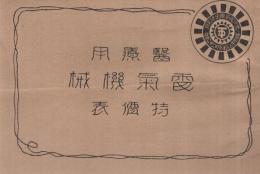 醫療用
電氣機械
特價表